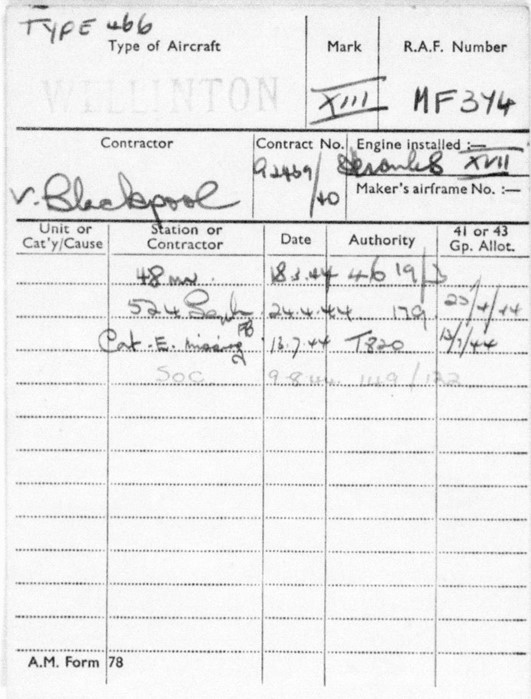 TYPE 466
Type of Aircraft Mark R.A.F. Number
WELLINTON XIII MF374
Contractor Contract No. Engine installed :—
92439/40 XVII
V. Blackpool Maker's airframe No. :—
Unit or Cat'y/Cause Station or Contractor Date Authority 41 or 43 Gp. Allot.
48 mu. 18.3.44 46 19/
524 Sqdn 24.4.44 179 /4/44
Cat. E. missing FB 18.7.44 T820 /7/44
SOC 9.8.44 1149/122
A.M. Form 78